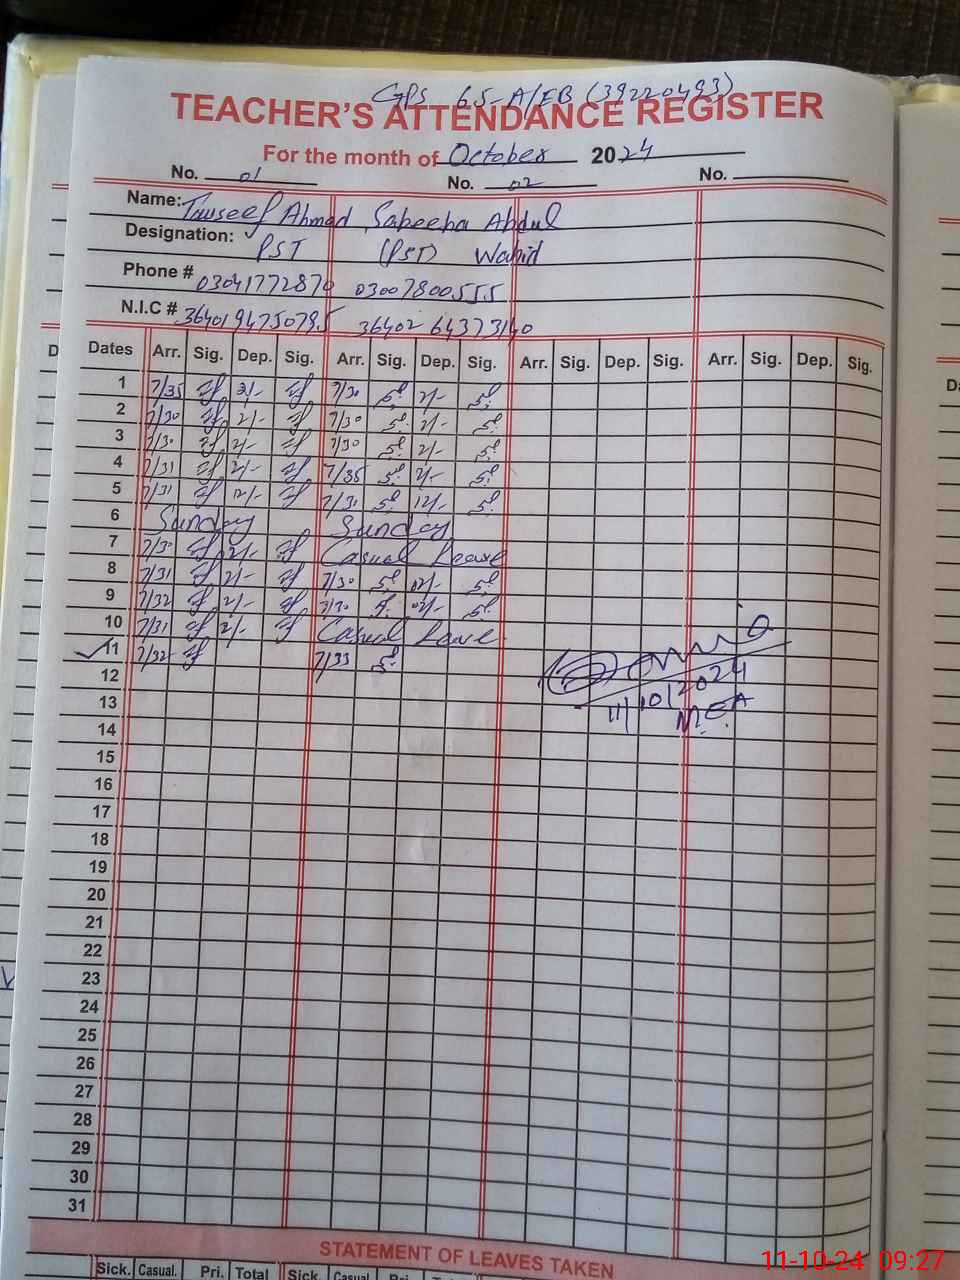 GPS 65-A/EB (39220493)
TEACHER'S ATTENDANCE REGISTER
For the month of October 2024
No. 01 No. 02 No.
Name: Tauseef Ahmad Sabeeha Abdul
Designation: PST (PST) Wahid
Phone # 03041772870 03007800555
N.I.C # 3640194750795 36402 64373140
Dates Arr. Sig. Dep. Sig. Arr. Sig. Dep. Sig. Arr. Sig. Dep. Sig. Arr. Sig. Dep. Sig.
1 7/35 2/- 7/30 2/-
2 7/30 2/- 7/30 2/-
3 7/30 2/- 7/30 2/-
4 7/31 2/- 7/35 2/-
5 7/31 12/- 7/30 12/-
6 Sunday Sunday
7 7/30 2/- Casual Leave
8 7/31 2/- 7/30 02/-
9 7/32 2/- 7/30 02/-
10 7/31 2/- Casual Leave
11 7/32 7/33
12
11/10/2024
13
MEA
14
15
16
17
18
19
20
21
22
23
24
25
26
27
28
29
30
31
STATEMENT OF LEAVES TAKEN
Sick. Casual. Pri. Total Sick. Casual Pri. T
11-10-24 09:27